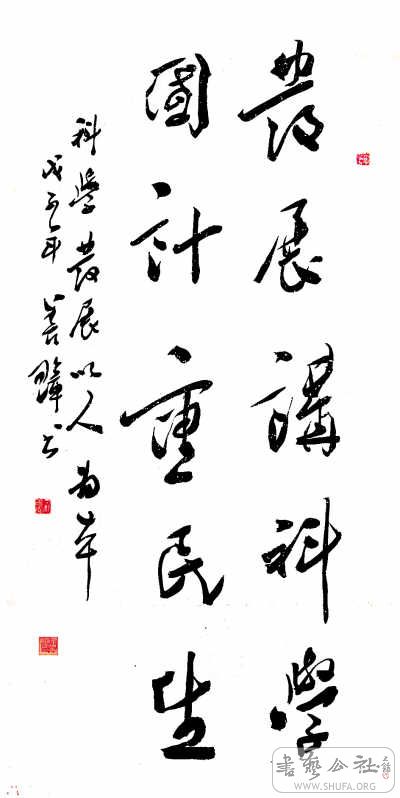 發展講科學
國計重民生
科學發展以人為本
戊子年 善璋書
書藝公社
WWW.SHUFA.ORG